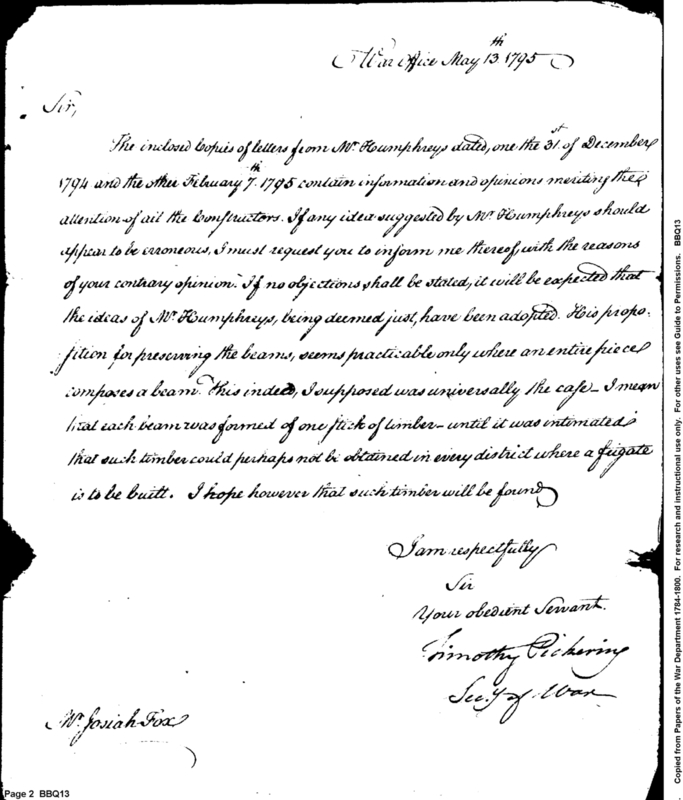 War office May 13th 1795
Sir,
The inclosed Copies of letters from Mr. Humphreys dated, one the 31st. of December
1794 and the other February 7th. 1795 contain information and opinions meriting the
attention of all the Constructors. If any idea suggested by Mr. Humphreys should
appear to be erroneous, I must request you to inform me thereof, with the reasons
of your contrary opinion. If no objections shall be stated, it will be expected that
the ideas of Mr. Humphreys, being deemed just, have been adopted. His propo-
sition for preserving the beams, seems practicable only where an entire piece
composes a beam. this indeed, I supposed was universally the case – I mean
that each beam was formed of one stick of timber – until it was intimated
that such timber could perhaps not be obtained in every district where a frigate
is to be built. I hope however that such timber will be found
I am respectfully
Sir
Your obedient Servant.
Timothy Pickering
Secy of War
Mr. Josiah Fox
Page 2 BBQ13
Copied from Papers of the War Department 1784-1800. For research and instructional use only. For other uses see Guide to Permissions. BBQ13